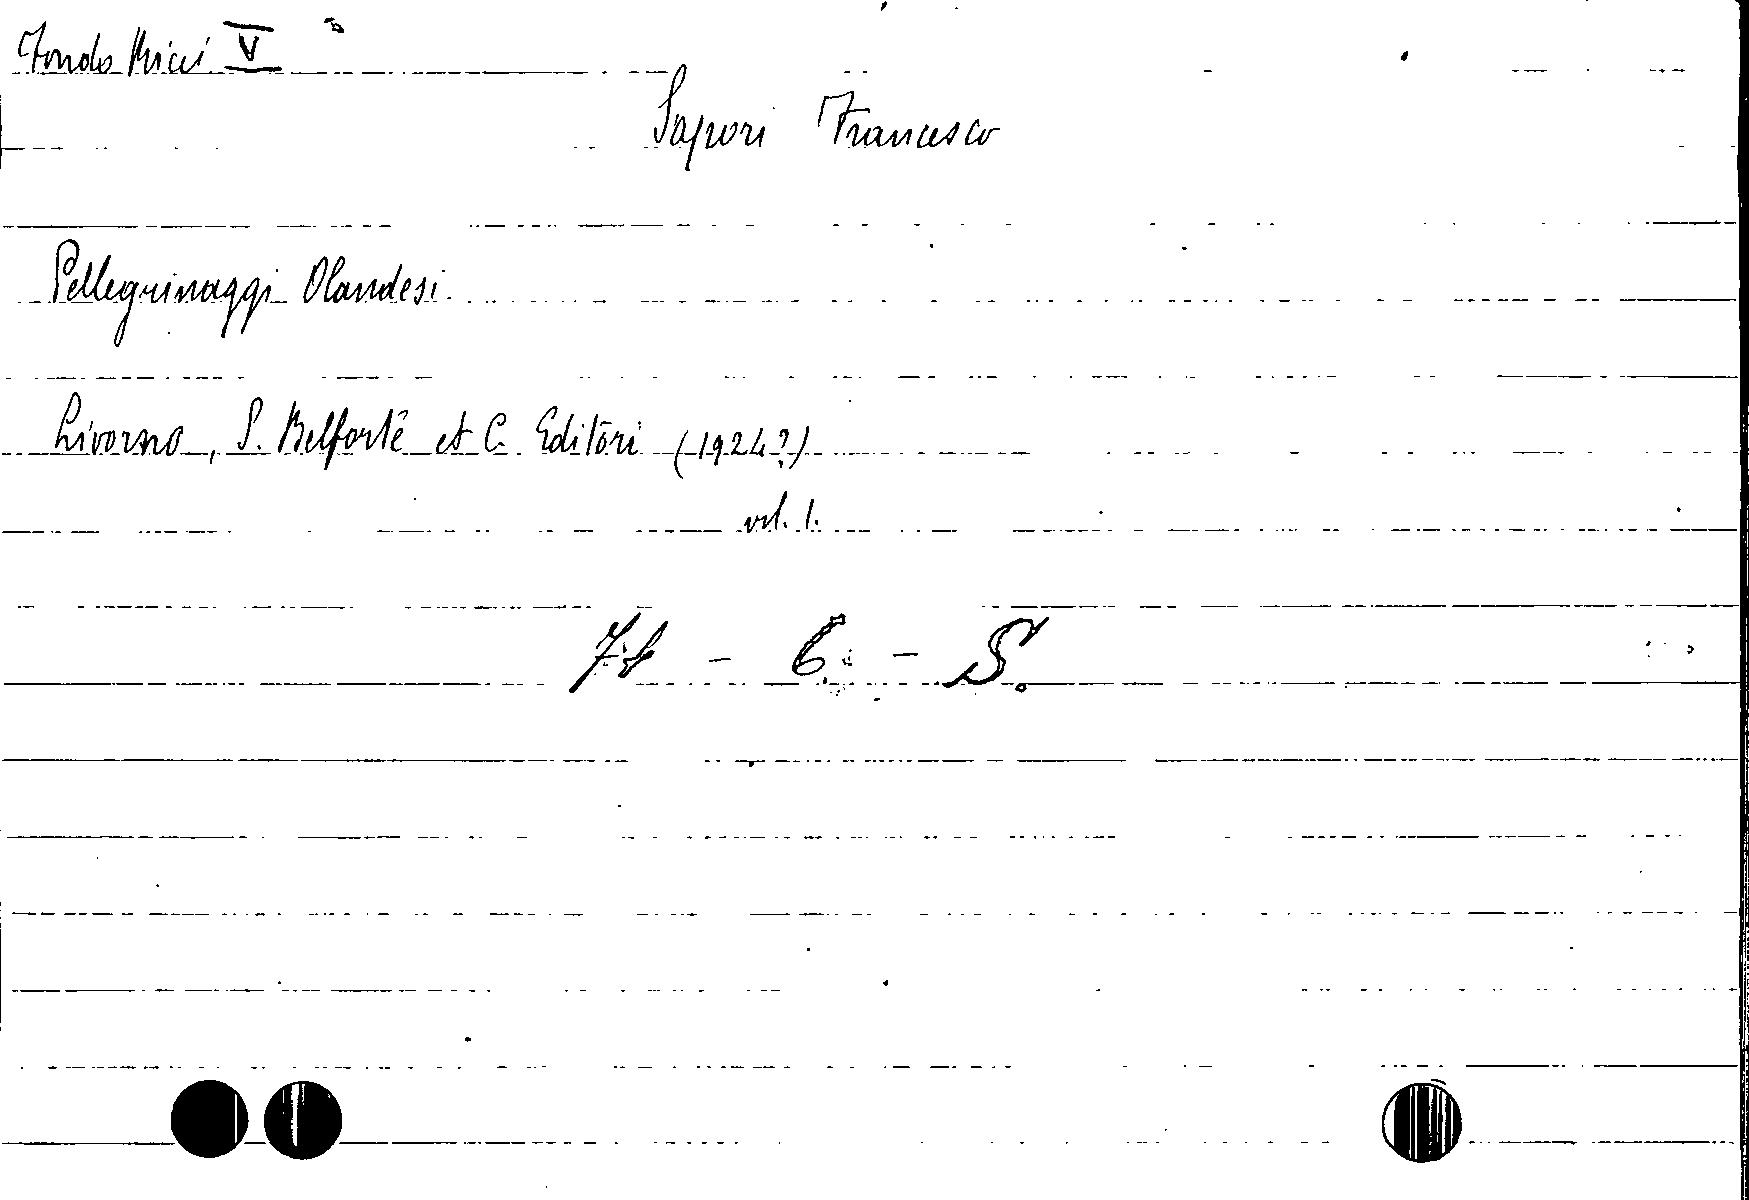 Fondo Ricci V
Sapori Francesco
Pellegrinaggi Olandesi
Livorno, S. Belforte et C. Editori (1924?)
vol. 1.
- 6. - S.